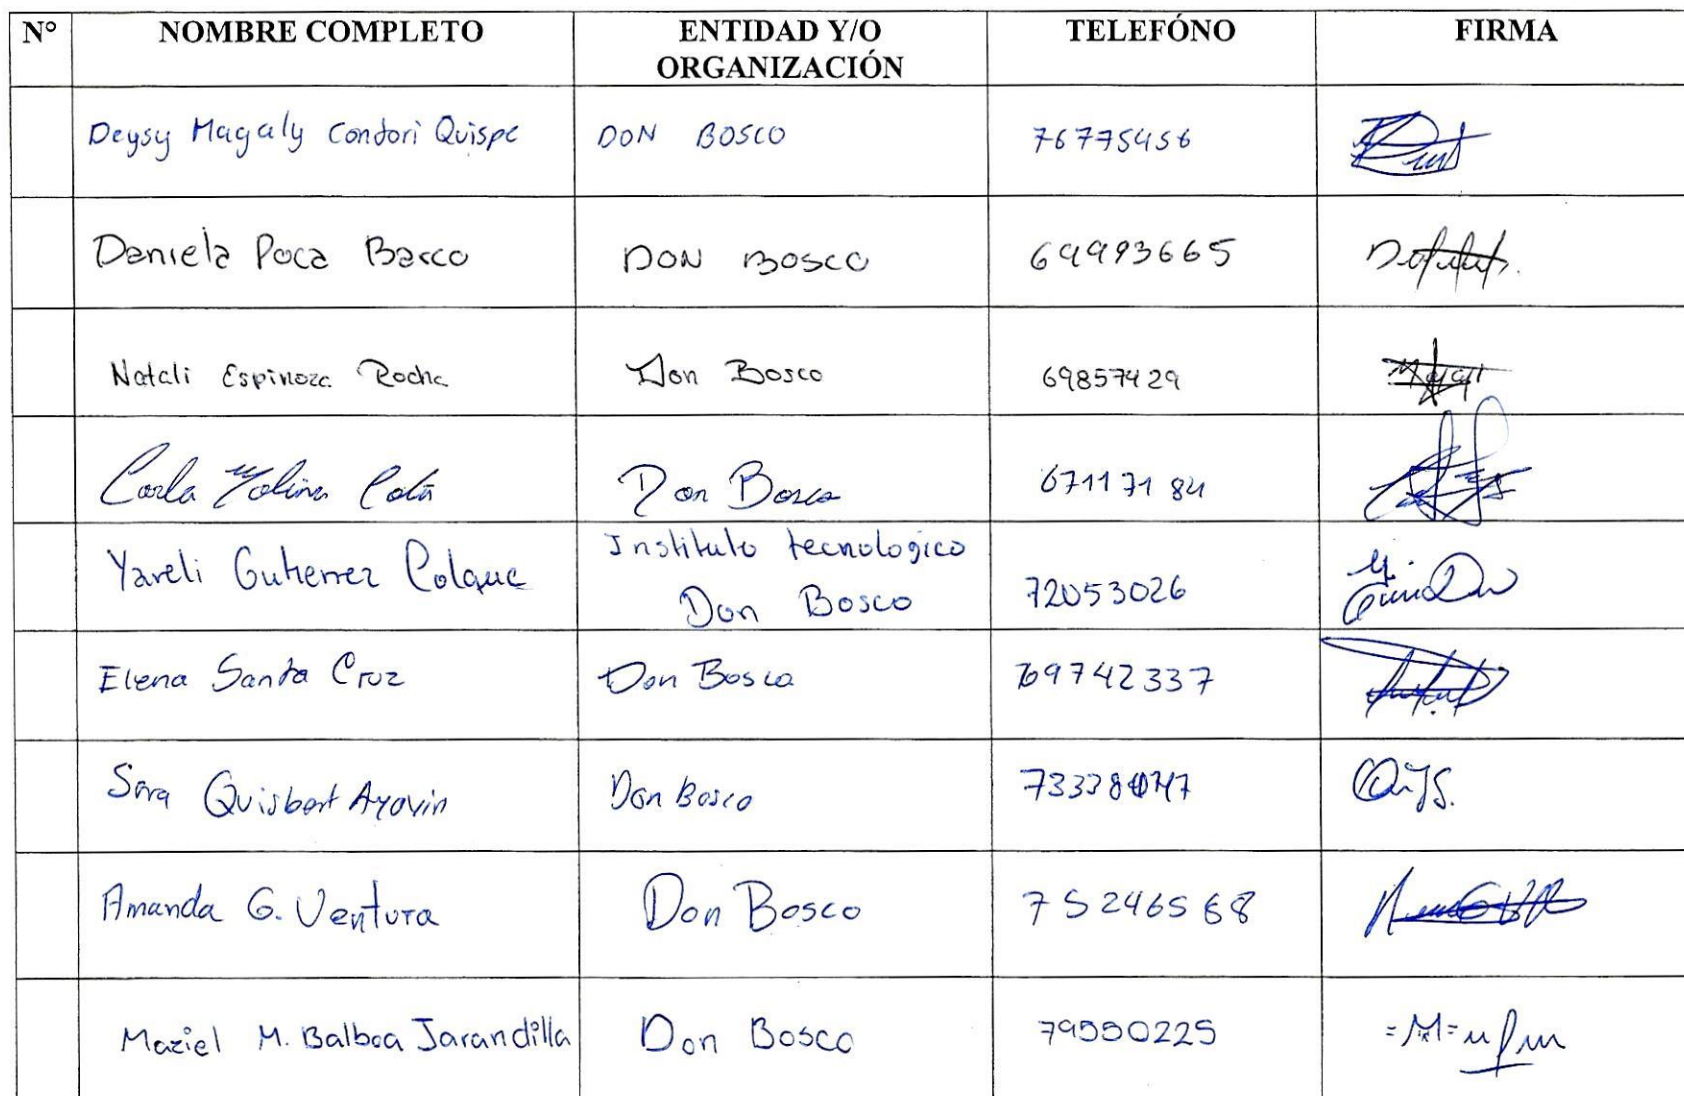 N° NOMBRE COMPLETO ENTIDAD Y/O ORGANIZACIÓN TELEFÓNO FIRMA
Deysy Magaly Condori Quispe DON BOSCO 76775456
Daniela Poca Barco DON BOSCO 69993665
Natali Espinoza Rocha Don Bosco 69857429
Carla Molina Don Bosco 67117184
Yareli Gutierrez Colque Instituto tecnologico Don Bosco 72053026
Elena Santa Cruz Don Bosco 69742337
Sara Quisbert Ayavin Don Bosco
Amanda G. Ventura Don Bosco 75246568
Maziel M. Balboa Jarandilla Don Bosco 79550225